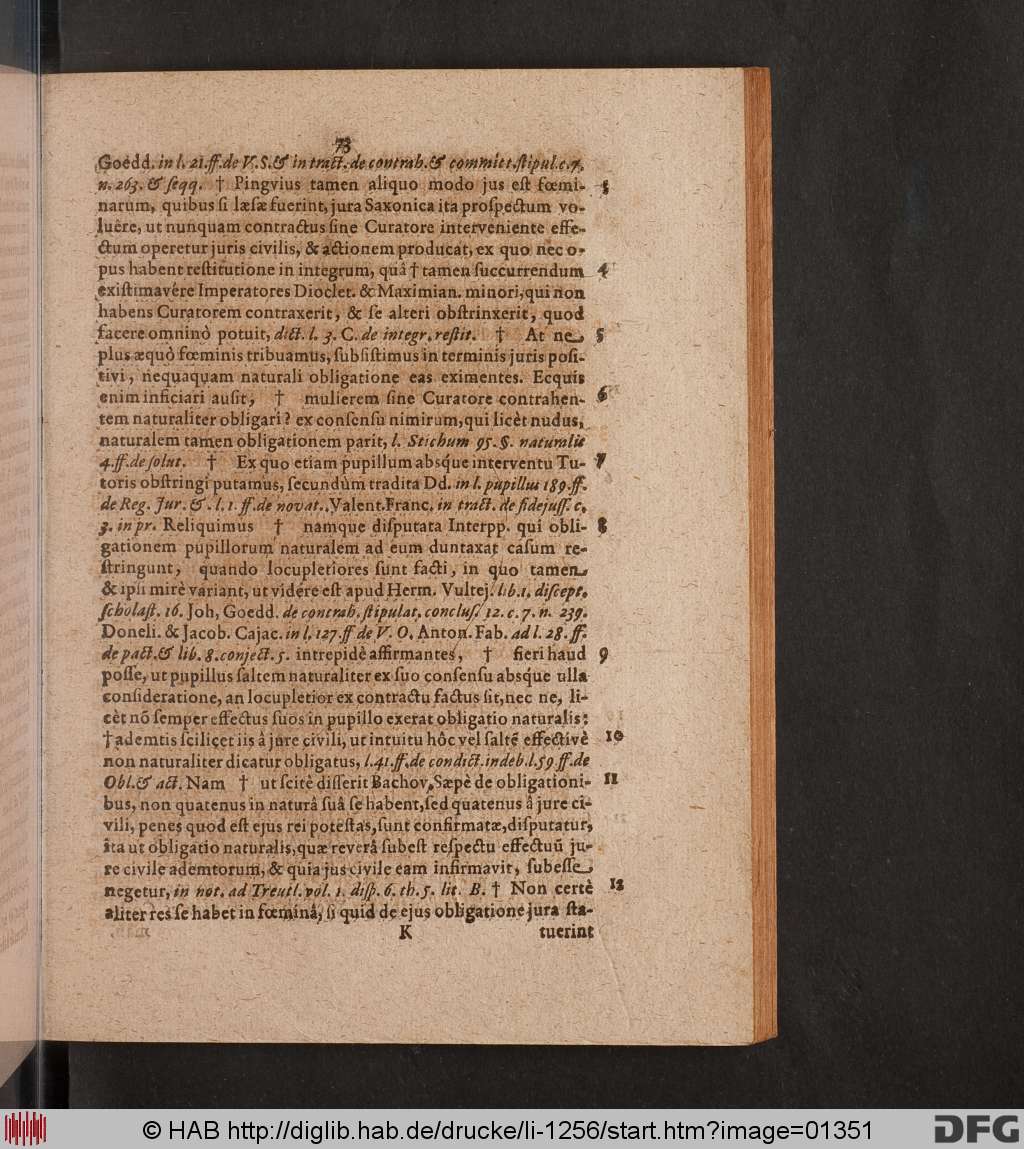 73
Goedd. in l. 21. ff. de V. S. & in tract. de contrah. & committ. ſtipul. c. 7.
n. 263. & ſeqq. † Pingvius tamen aliquo modo jus eſt fœmi- 3
narum, quibus ſi læſæ fuerint, jura Saxonica ita proſpectum vo-
luêre, ut nunquam contractus ſine Curatore interveniente effe-
ctum operetur juris civilis, & actionem producat, ex quo nec o-
pus habent reſtitutione in integrum, quâ † tamen ſuccurrendum 4
exiſtimavére Imperatores Dioclet. & Maximian. minori, qui non
habens Curatorem contraxerit, & ſe alteri obſtrinxerit, quod
facere omninò potuit, dict. l. 3. C. de integr. reſtit. † At ne 5
plus æquò fœminis tribuamus, ſubſiſtimus in terminis juris poſi-
tivi, nequaquam naturali obligatione eas eximentes. Ecquis
enim inficiari auſit, † mulierem ſine Curatore contrahen- 6
tem naturaliter obligari? ex conſenſu nimirum, qui licèt nudus,
naturalem tamen obligationem parit, l. Stichum 95. §. naturalis
4. ff. de ſolut. † Ex quo etiam pupillum absq́ue interventu Tu- 7
toris obſtringi putamus, ſecundùm tradita Dd. in l. pupillus 189. ff.
de Reg. Jur. & . l. 1. ff. de novat. Valent. Franc. in tract. de fidejuſſ. c.
3. in pr. Reliquimus † namque diſputata Interpp. qui obli- 8
gationem pupillorum naturalem ad eum duntaxat caſum re-
ſtringunt, quando locupletiores ſunt facti, in quo tamen
& ipſi mirè variant, ut vidére eſt apud Herm. Vultej. lib. 1. diſcept.
ſcholaſt. 16. Joh, Goedd. de contrah. ſtipulat. concluſ. 12. c. 7. n. 239.
Donell. & Jacob. Cajac. in l. 127. ff de V. O. Anton. Fab. ad l. 28. ff.
de pact. & lib. 8. conject. 5. intrepidè affirmantes, † fieri haud 9
poſſe, ut pupillus ſaltem naturaliter ex ſuo conſenſu absq́ue ulla
conſideratione, an locupletior ex contractu factus ſit, nec ne, li-
cèt nõ ſemper effectus ſuos in pupillo exerat obligatio naturalis:
† ademtis ſcilicet iis â jure civili, ut intuitu hôc vel ſaltẽ effectivè 10
non naturaliter dicatur obligatus, l. 41. ff. de condict. indeb. l. 59. ff. de
Obl. & act. Nam † ut ſcitè diſſerit Bachov. Sæpè de obligationi- 11
bus, non quatenus in naturâ ſuâ ſe habent, ſed quatenus â jure ci-
vili, penes quod eſt ejus rei poteſtas, ſunt confirmatæ, diſputatur,
ita ut obligatio naturalis, quæ reverâ ſubeſt reſpectu effectuũ ju-
re civile ademtorum, & quia jus civile eam infirmavit, ſubeſſe
negetur, in not. ad Treutl. vol. 1. diſp. 6. th. 5. lit. B. † Non certè 12
aliter res ſe habet in fœminâ, ſi quid de ejus obligatione jura ſta-
K tuerint
© HAB http://diglib.hab.de/drucke/li-1256/start.htm?image=01351
DFG